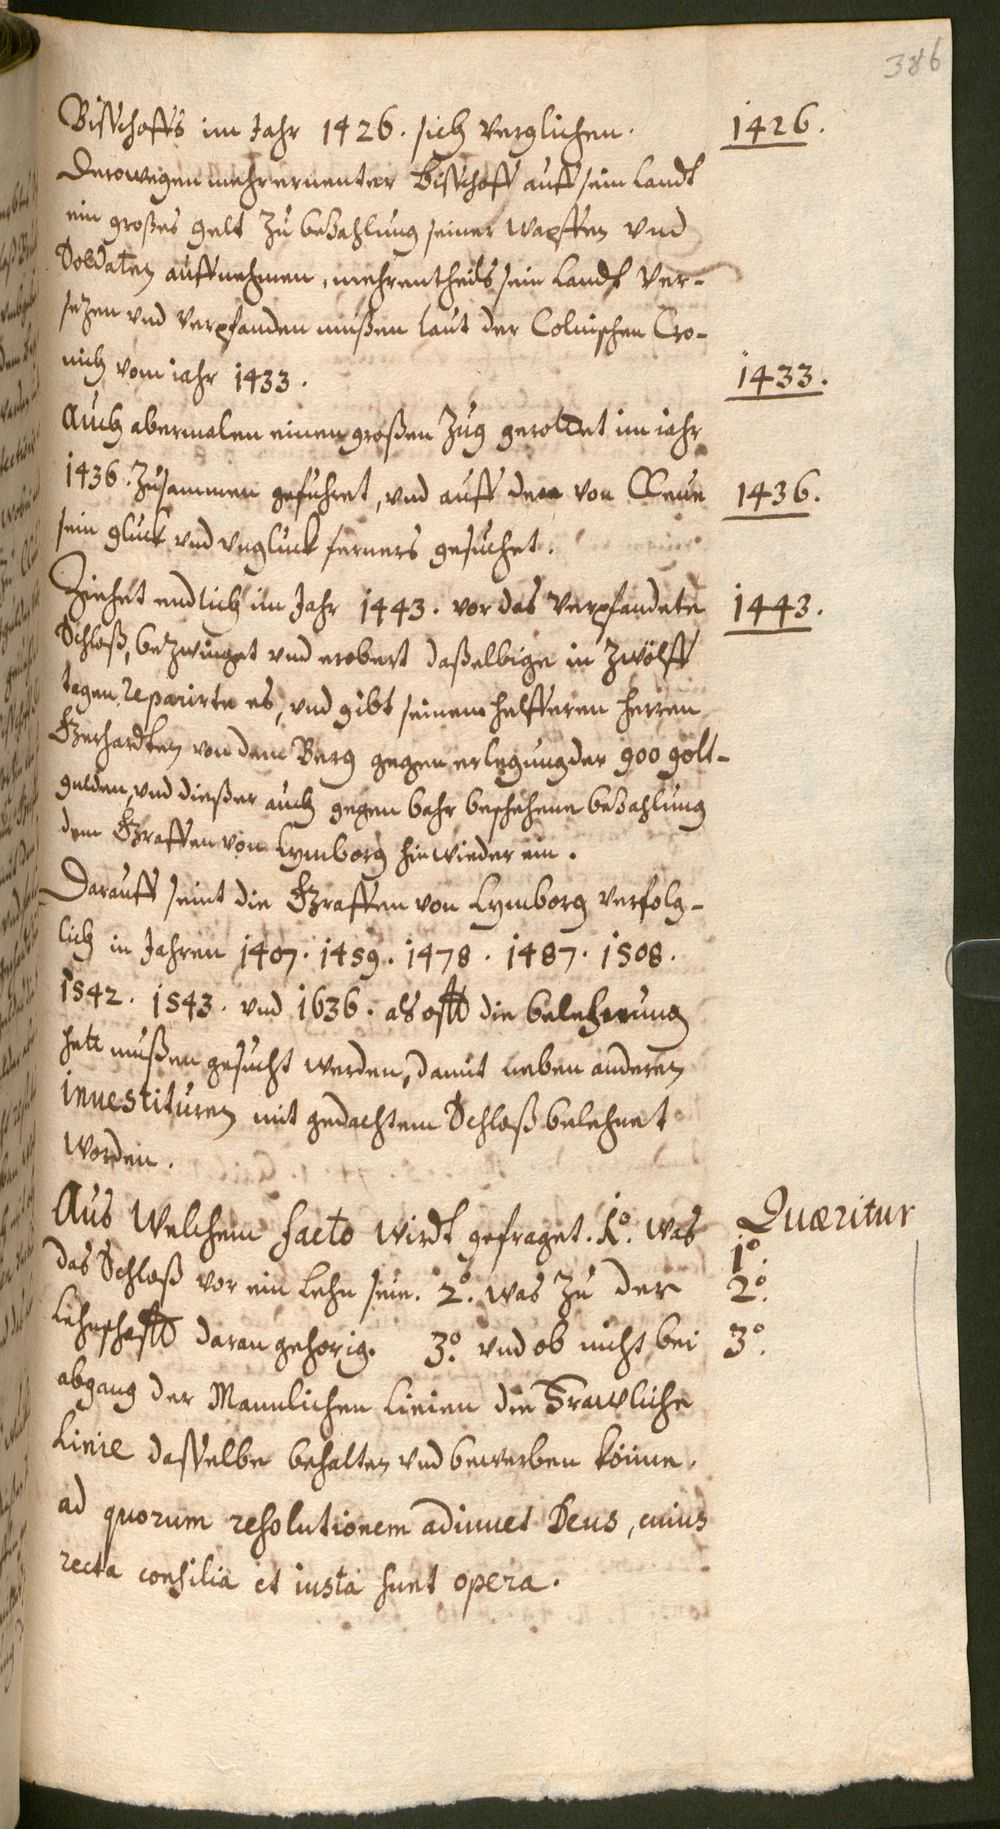 386
Bisschoffs im Jahr 1426. sich verglichen.
1426.
Derowegen mehrernenter Bisschoff auff sein Landt
ein großes gelt zu bezahlung seiner Waffen vnd
Soldaten auffnehmen, mehrentheils sein Landt ver-
sezen vnd verpfanden mußen laut der Colnischen Cro-
nich vom iahr 1433.
1433.
Auch abermalen einen großen Zug gerottet im iahr
1436. zusammen gefuhret, vnd auff den von Cleue
1436.
sein gluck vnd vngluck ferners gesuchet.
Ziehet endlich im Jahr 1443. vor das verpfandete
1443.
Schloß, bezwinget vnd erobert daßelbige in zwölff
tagen reparirte es, vnd gibt seinem helfferen herren
Gerhardten von dem Berg gegen erlegung der 900 golt-
gulden, vnd dießer auch gegen bahr beschehene bezahlung
dem Graffen von Lymborg hinwieder ein.
Darauff seint die Graffen von Lymborg verfolg-
lich in Jahren 1407. 1459. 1478. 1487. 1508.
1542. 1543. vnd 1636. als offt die belehnung
hett mußen gesucht werden, damit neben anderen
inuestituren mit gedachtem Schloß belehnet
worden.
Aus Welchem facto wirdt gefraget. 1º. was
Quæritur
1º.
das Schloß vor ein Lehn seie. 2º. was zu der
2º.
Lehnschafft daran gehorig. 3º. vnd ob nicht bei
3º.
abgang der Mannlichen Linien die Frawliche
Linie dasselbe behalten vnd bewerben könne.
ad quorum resolutionem adiuuet Deus, cuius
recta consilia et iusta sunt opera.